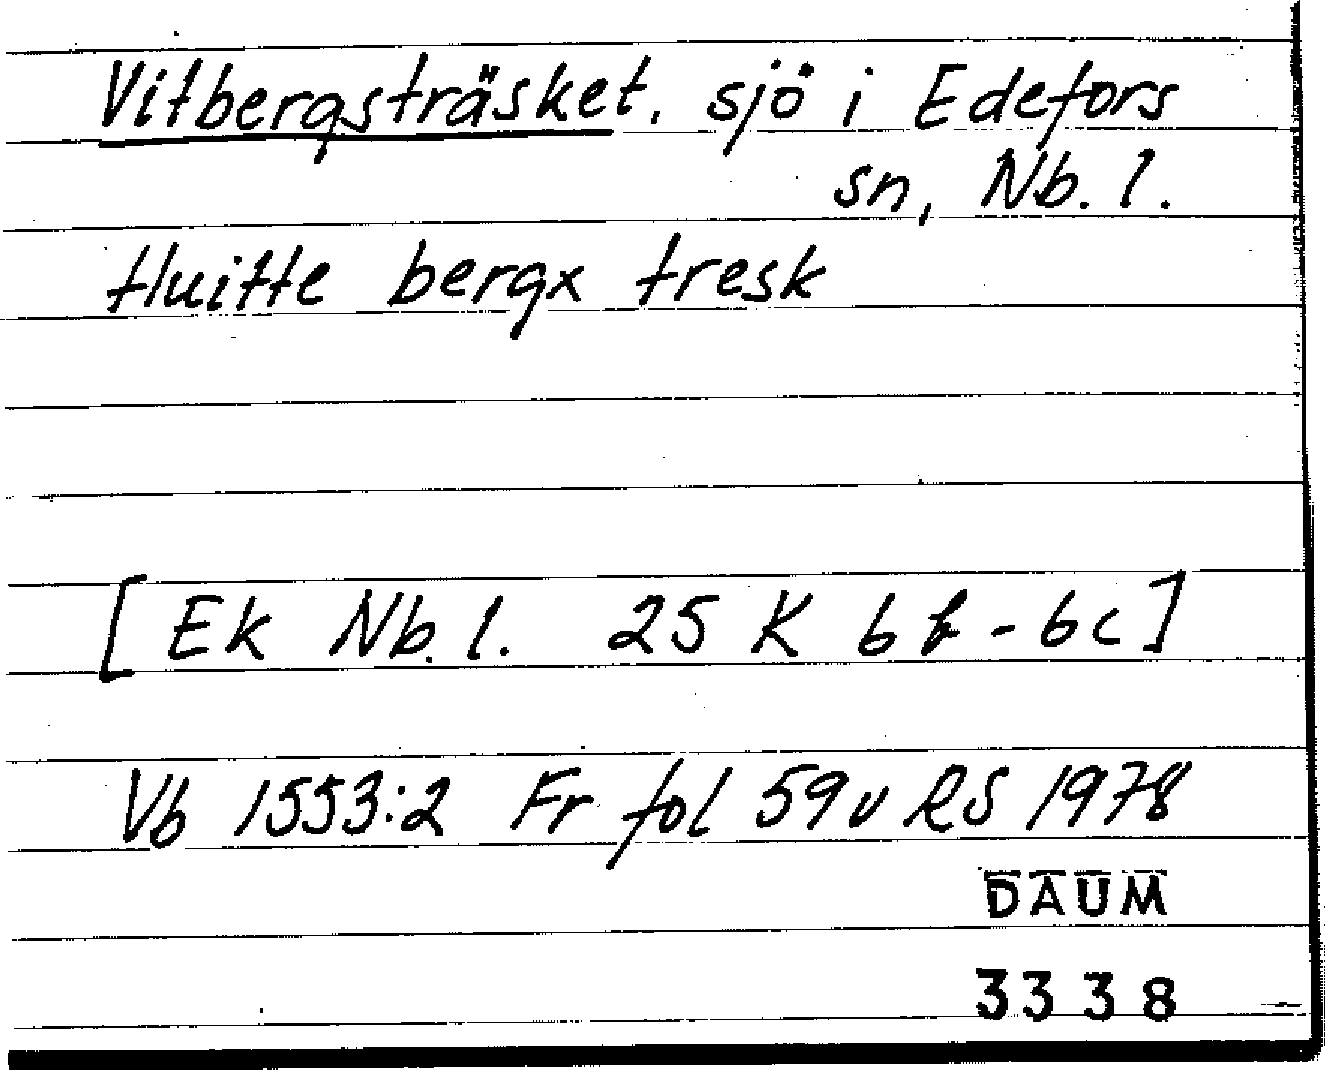 Vitbergsträsket. sjö i Edefors
sn, Nb. l.
Huitte bergx tresk
[Ek Nb. l. 25 K 6 b - 6c]
Vb 1553:2 Fr fol 59v RS 1978
DAUM
3338